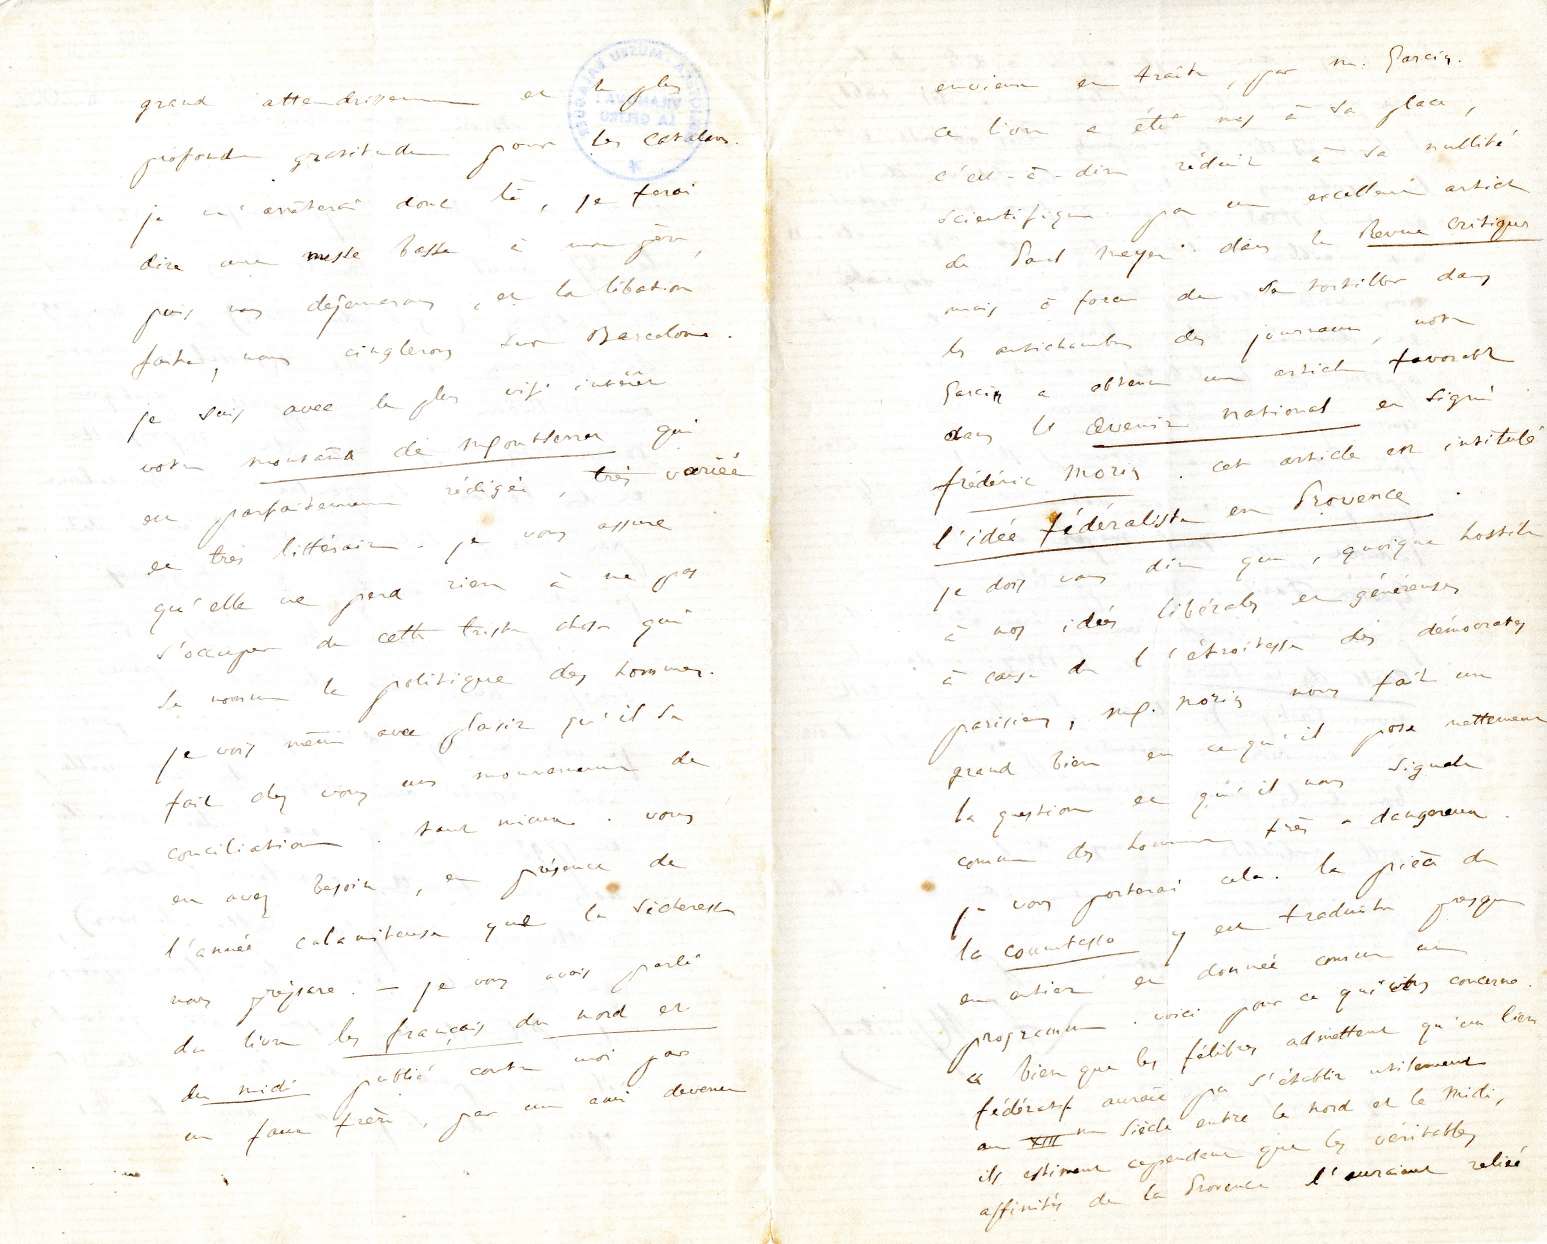 grand attendrissement et la plus
profonde gratitude pour les catalans.
je m'arrêterai donc là, je ferai
dire une messe basse à mon père,
puis nous déjeunerons, et la libation
faite, nous cinglerons sur Barcelone.
je suis avec le plus vif intérêt
votre montaña de Montserra qui
est parfaitement rédigée, très variée
et très littéraire. je vous assure
qu'elle ne perd rien à ne pas
s'occuper de cette triste chose qui
se nomme la politique des hommes.
je vois même avec plaisir qu'il se
fait chez vous un mouvement de
conciliation. tant mieux. vous
en avez besoin, en présence de
l'année calamiteuse que la sécheresse
nous prépare. — je vous avais parlé
du livre les français du nord et
du midi publié contre moi par
un faux frère, par un ami devenu
envieux et traître, par M. Garcin.
ce livre a été mis à sa place,
c'est-à-dire réduit à sa nullité
scientifique par un excellent article
de Paul Meyer dans la Revue critique
mais à force de se tortiller dans
les antichambres des journaux, notre
Garcin a obtenu un article favorable
dans l'avenir national et signé
frédéric Morin. cet article est intitulé
l'idée fédéraliste en Provence.
je dois vous dire que, quoique hostile
à nos idées libérales et généreuses
à cause de l'étroitesse des démocrates
parisiens, M. Morin nous fait un
grand bien en ce qu'il pose nettement
la question et qu'il nous signale
comme des hommes très dangereux.
je vous porterai cela. la pièce de
la countesso y est traduite presque
en entier et donnée comme un
programme. voici pour ce qui vous concerne.
« bien que les félibres admettent qu'un lien
fédératif aurait pu s'établir utilement
au XIIIme siècle entre le nord et le Midi,
ils estiment cependant que les véritables
affinités de la Provence l'auraient reliée